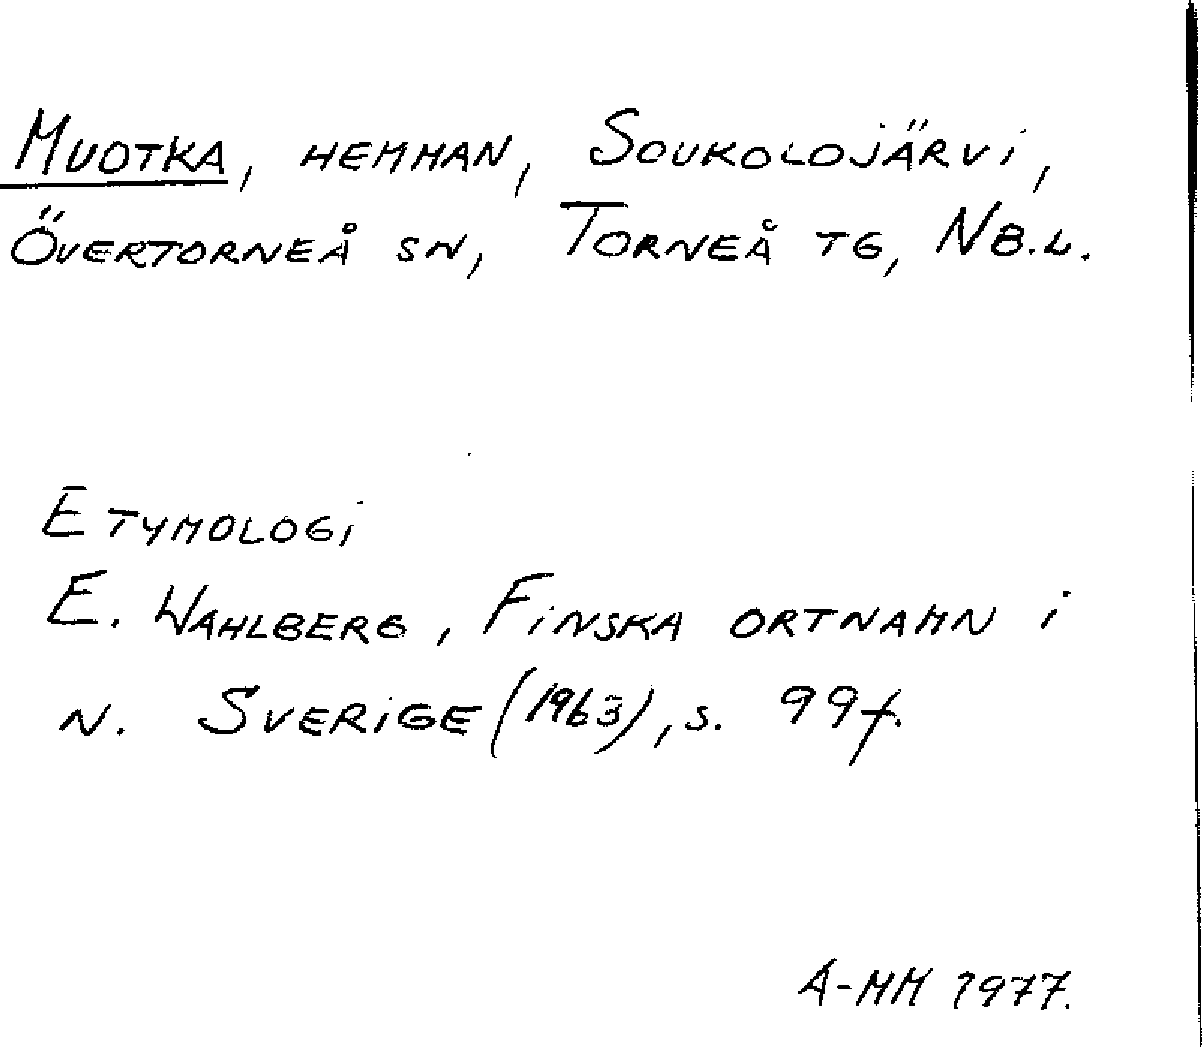 MUOTKA, HEMMAN, SOUKOLOJÄRVI,
ÖVERTORNEÅ SN, TORNEÅ TG, NB.L.
ETYMOLOGI
E. WAHLBERG, FINSKA ORTNAMN I
N. SVERIGE (1963), S. 99f.
A-MM 1977.